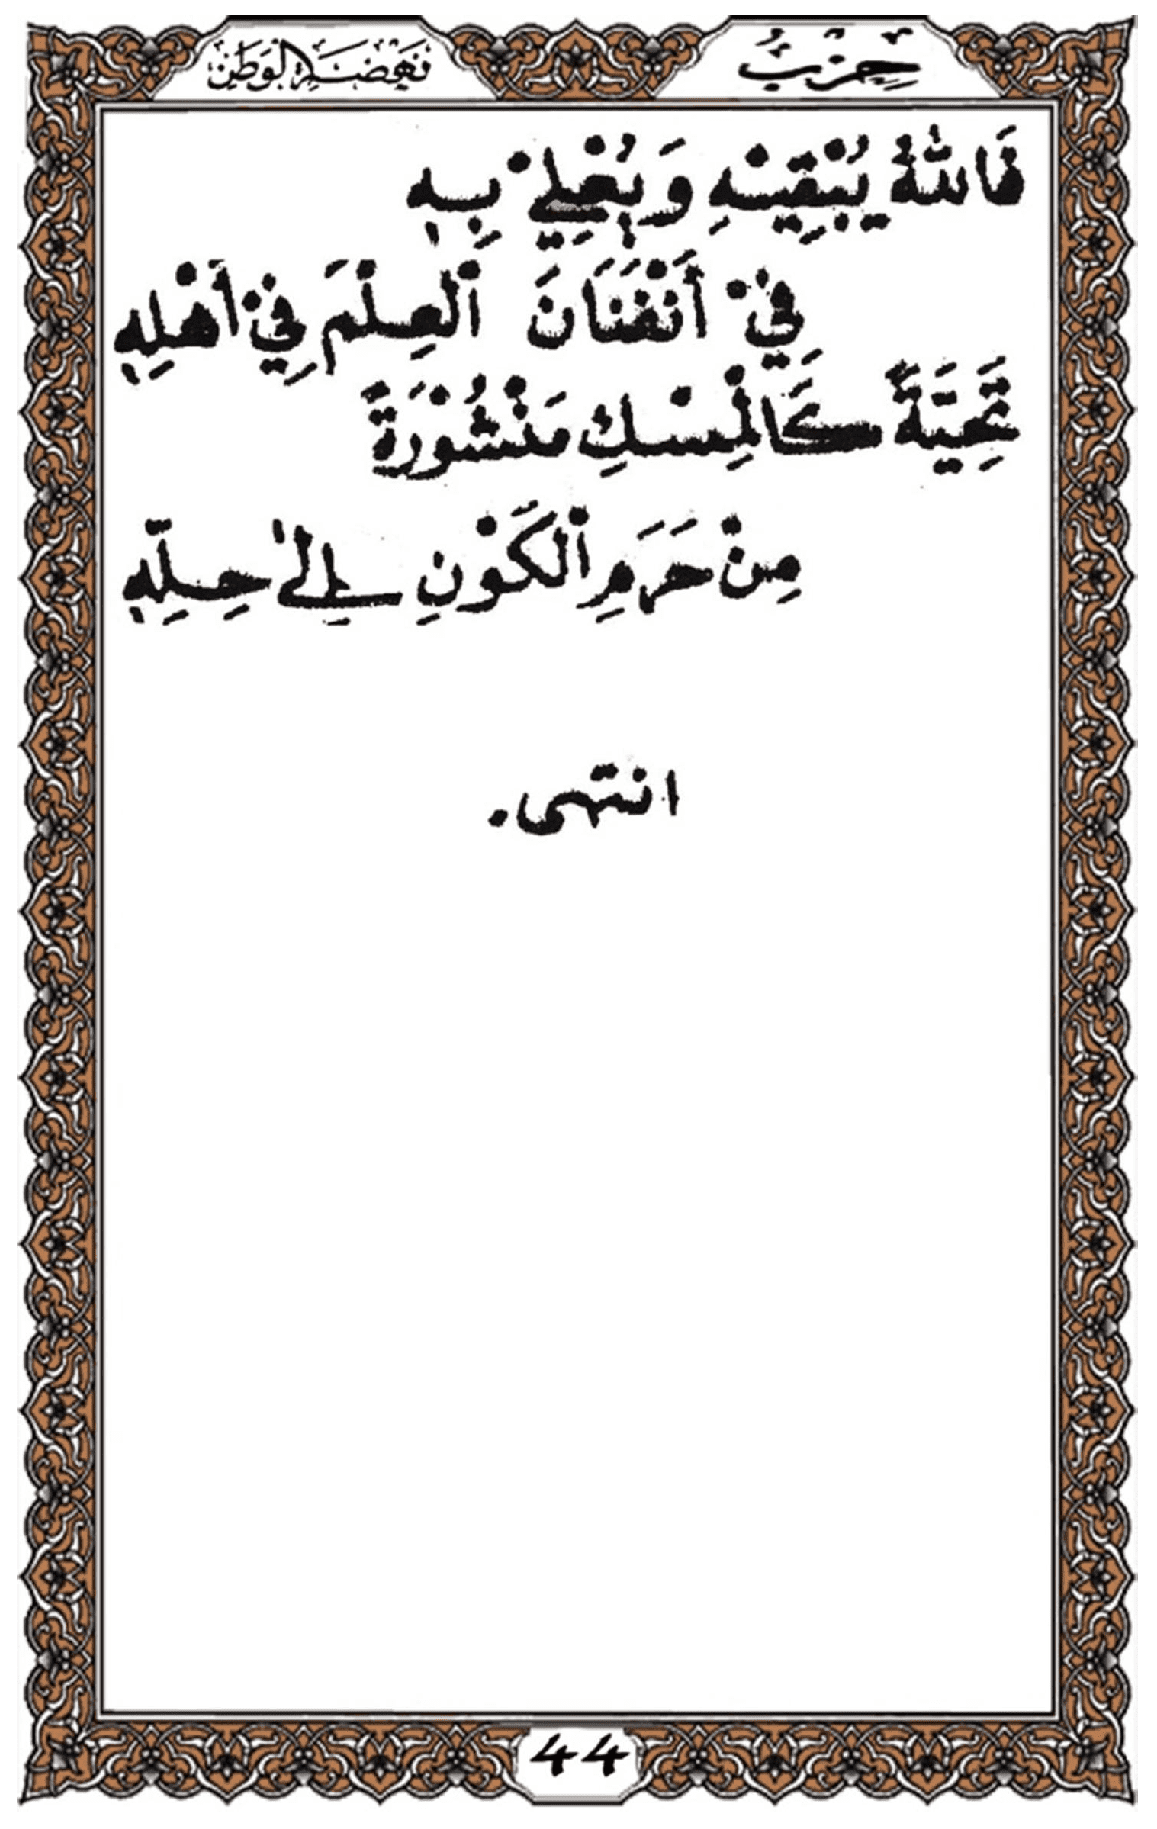 حِزْبُ
نَهْضَةِ الْوَطَنْ
فَاللهُ يُبْقِيْهِ وَيُعْلِيْ بِهِ
فِيْ أَنْفَنَانَ الْعِلْمَ فِيْ أَهْلِهِ
تَحِيَّةً كَالْمِسْكِ مَنْشُوْرَةً
مِنْ حَرَمِ الْكَوْنِ إِلَى حِلِّهِ
انتهى.
44